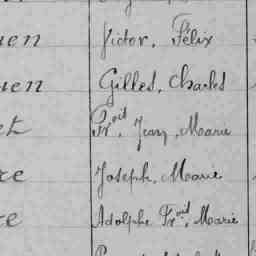 uen Victor, Félix
uen Gilles, Charles
et Fr.oit, Jean, Marie
re Joseph, Marie
re Adolphe Fr.oit, Marie